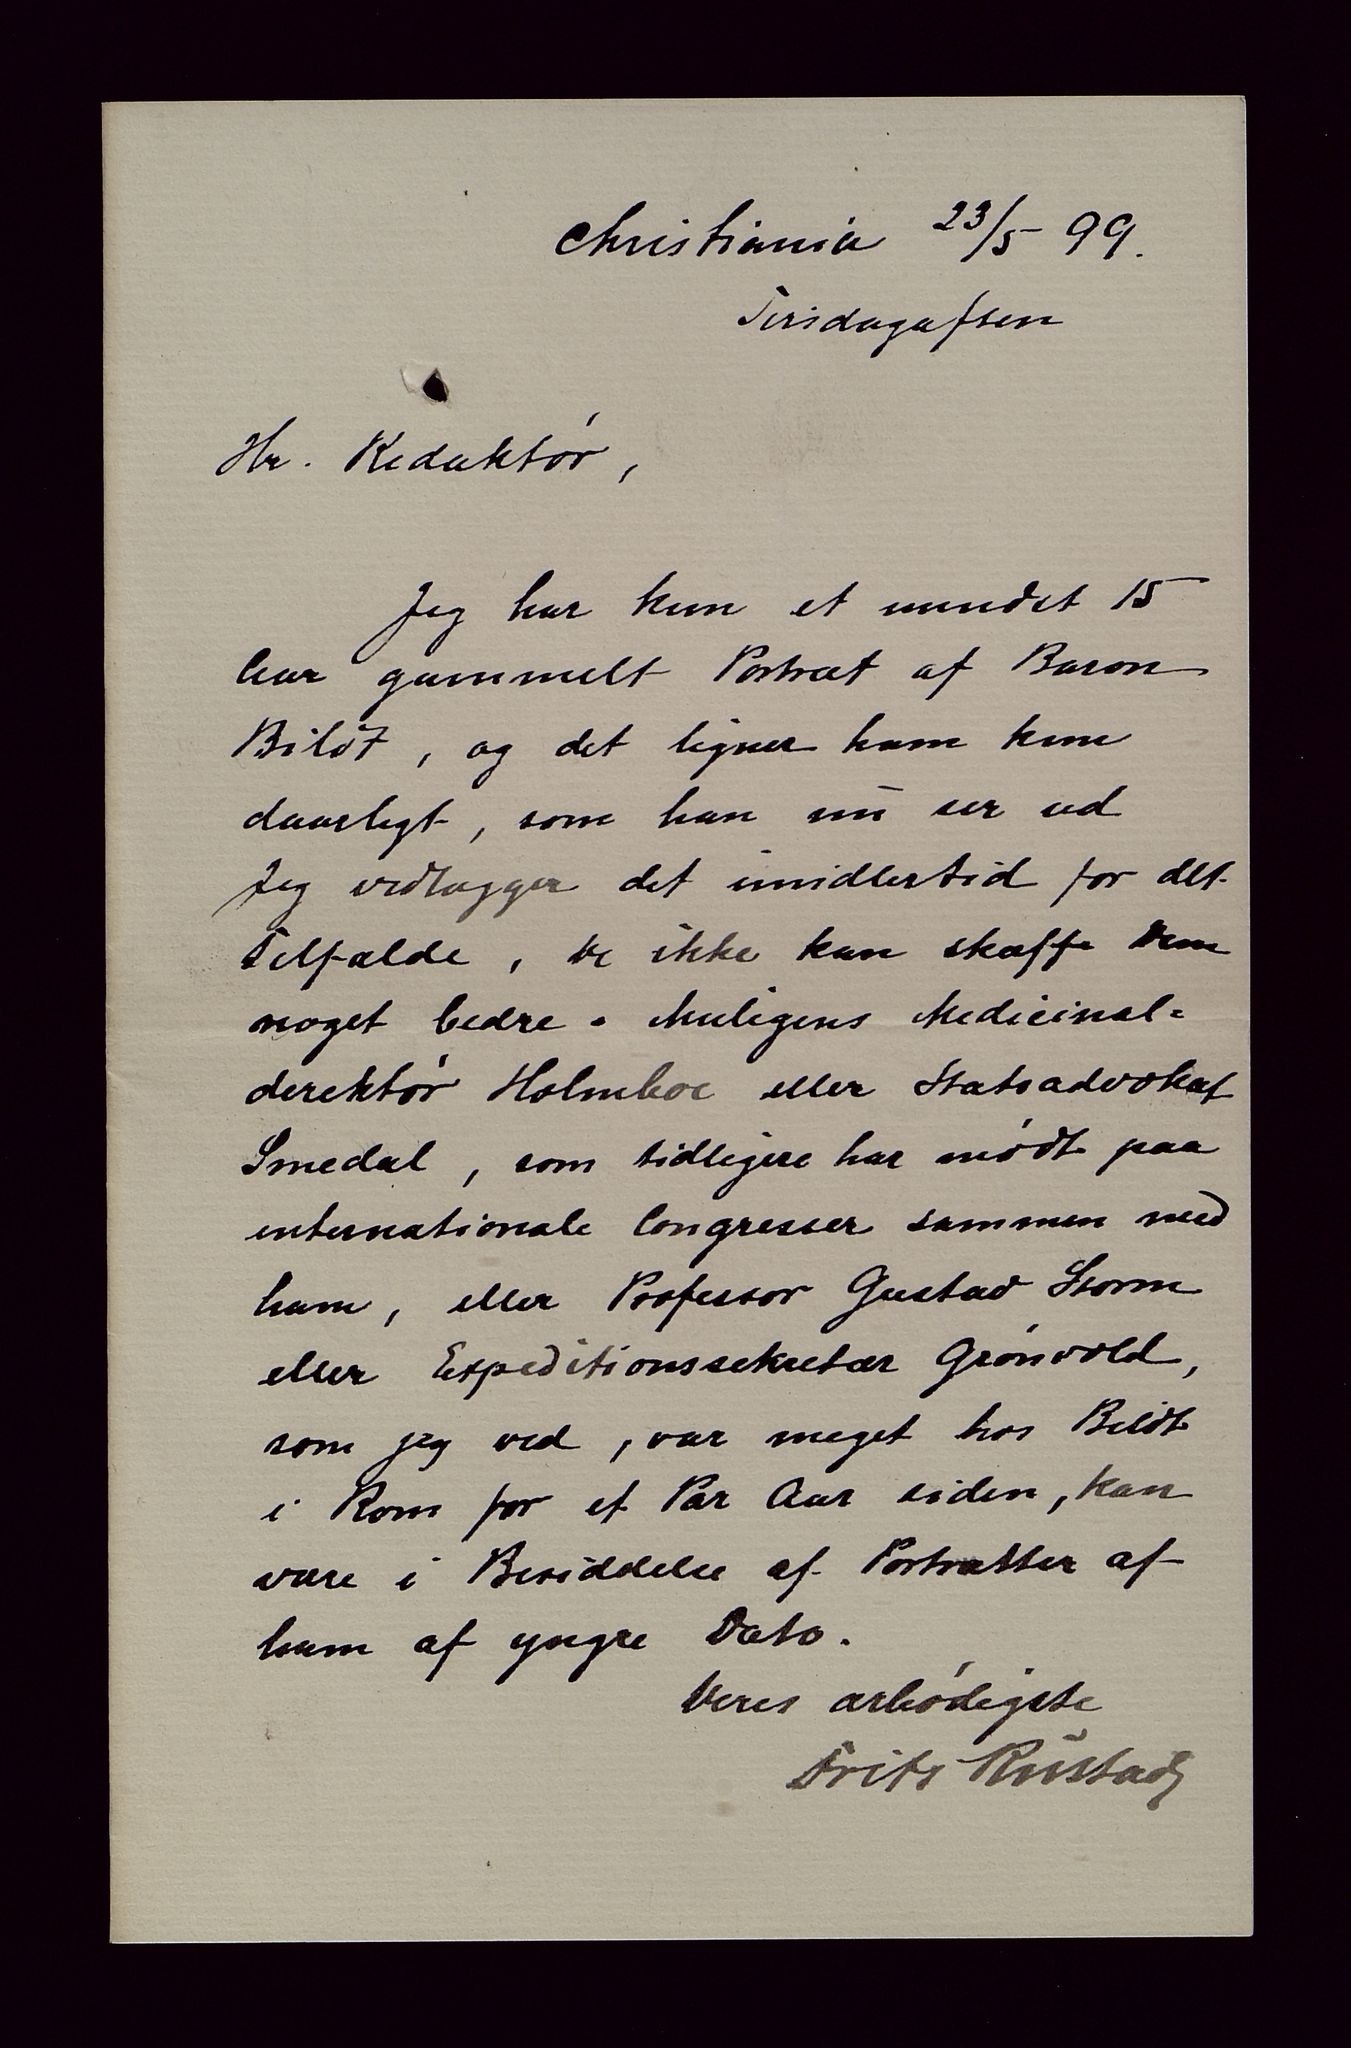 Christiania 23/5 99.
Tirsdagaften
Hr. Redaktør,
Jeg har kun et mindst 15
Aar gammelt Portræt af Baron
Bildt, og det ligner ham kun
daarligt, som han nu ser ud
Jeg vedlægger det imidlertid for det
Tilfælde, De ikke kan skaffe Dem
noget bedre. Muligens Medicinal-
direktør Holmboe eller Statsadvokat
Smedal, som tidligere har mødt paa
internationale Congresser sammen med
ham, eller Professor Gustav Storm
eller Expeditionssekretær Grønvold,
som jeg ved, var meget hos Bildt
i Rom for et Par Aar siden, kan
være i Besiddelse af Portrætter af
ham af yngre Dato.
Deres ærbødigste
Frits Rustad